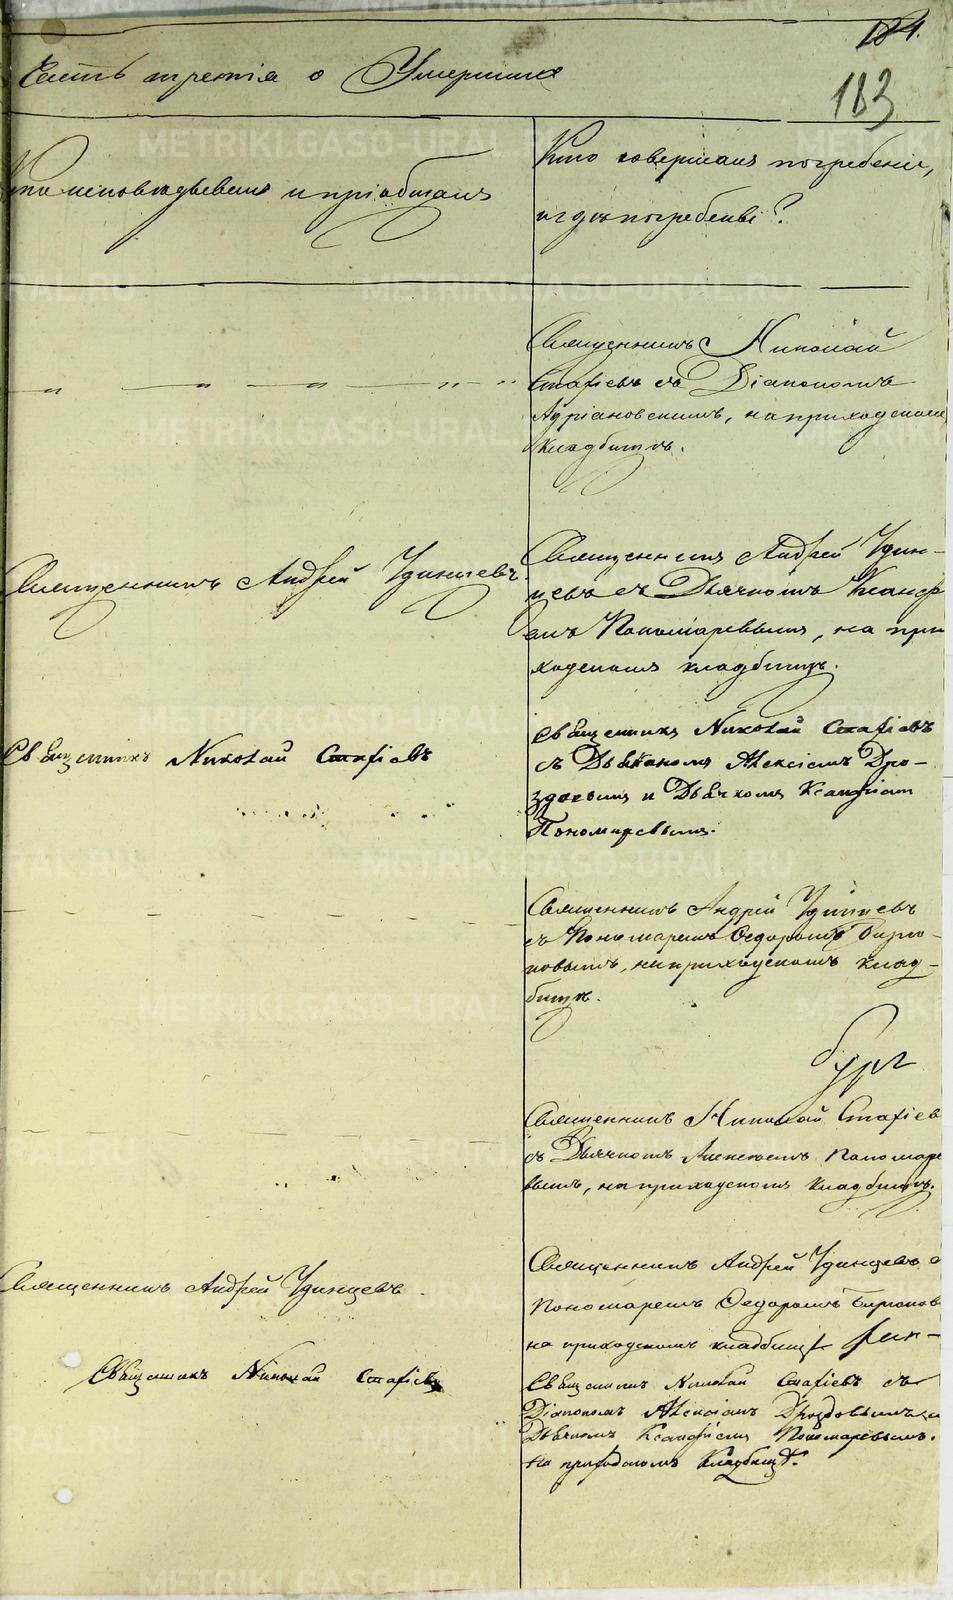 184.
183
Часть третія о Умершихъ
Кто исповѣдывалъ и пріобщалъ
Кто совершалъ погребеніе,
и гдѣ погребены?
Священникъ Николай
Стафіевъ съ Діакономъ
Адріановскимъ, на приходскомъ
кладбищѣ.
Священникъ Андрей Удинцевъ
Священникъ Андрей Удин-
цевъ съ Дьячкомъ Ксанф
омъ Пономаревымъ, на при
ходскомъ кладбищѣ.
Священникъ Николай Стафіевъ
Священникъ Николай Стафіевъ
съ Дьякономъ Алексіемъ Дро-
здовымъ и Дьячкомъ Ксанфіем
Пономаревымъ.
Священникъ Андрей Удинцевъ
съ Пономаремъ Ѳедоромъ Бирю-
ковымъ, на приходскомъ клад-
бищѣ.
Священникъ Николай Стафіев
съ Дьячкомъ Алексѣемъ Пономаре
вымъ, на приходскомъ кладбищѣ.
Священникъ Андрей Удинцевъ
Священникъ Андрей Удинцевъ с
Пономаремъ Ѳедоромъ Бирюков
на приходскомъ кладбищѣ
Священникъ Николай Стафіевъ
Священникъ Николай Стафіевъ съ
Діакономъ Алексіемъ Дроздовымъ и
Дьячкомъ Ксанфіемъ Пономаревымъ.
на приходскомъ Кладбищѣ.
METRIKI.GASO-URAL.RU